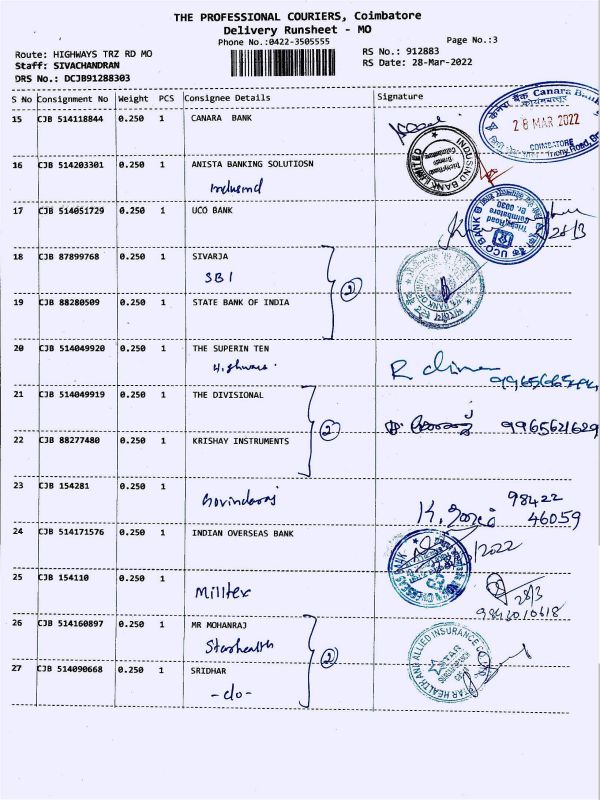 THE PROFESSIONAL COURIERS, Coimbatore
Delivery Runsheet - MO
Phone No.:0422-3505555
Page No.:3
Route: HIGHWAYS TRZ RD MO
RS No.: 912883
Staff: SIVACHANDRAN
RS Date: 28-Mar-2022
DRS No.: DCJB91288303
S No Consignment No Weight PCS Consignee Details Signature
15 CJB 514118844 0.250 1 CANARA BANK
Canara Bank
28 MAR 2022
COIMBATORE
INDUSIND BANK LIMITED
16 CJB 514203301 0.250 1 ANISTA BANKING SOLUTIOSN
Indusind
17 CJB 514051729 0.250 1 UCO BANK
UCO BANK
Trichy Road
Coimbatore
Br. 0030
28/3
18 CJB 87899768 0.250 1 SIVARJA
SBI
2
19 CJB 88280509 0.250 1 STATE BANK OF INDIA
20 CJB 514049920 0.250 1 THE SUPERIN TEN
Highways
21 CJB 514049919 0.250 1 THE DIVISIONAL
2
9965621629
22 CJB 88277480 0.250 1 KRISHAY INSTRUMENTS
23 CJB 154281 0.250 1
Govindaraj
98422
46059
24 CJB 514171576 0.250 1 INDIAN OVERSEAS BANK
/2022
25 CJB 154110 0.250 1
Milltex
28/3
9843010618
26 CJB 514160897 0.250 1 MR MOHANRAJ
Starhealth
2
STAR HEALTH AND ALLIED INSURANCE CO
STAR
27 CJB 514090668 0.250 1 SRIDHAR
-do-